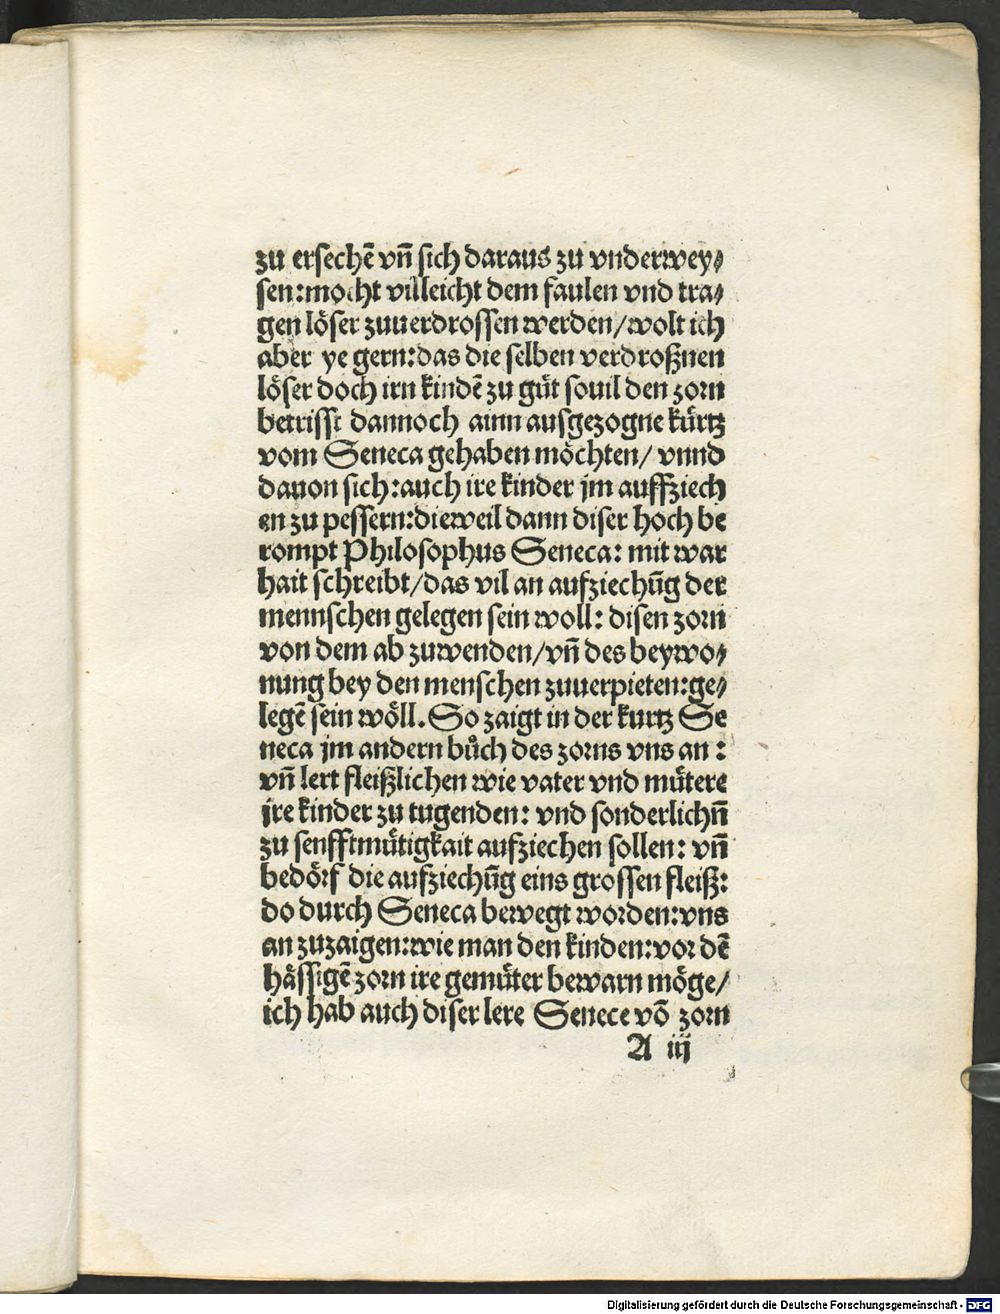 zu ersechē vn̄ sich daraus zu vnderwey⸗
sen:mocht villeicht dem faulen vnd tra⸗
gen löser zuuerdrossen werden/wolt ich
aber ye gern:das die selben verdroßnen
löser doch irn kindē zu gůt souil den zorn
betrifft dannoch ainn ausgezogne kürtz
vom Seneca gehaben möchten/ vnnd
dauon sich:auch ire kinder jm auffziech
en zu pessern:dieweil dann diser hoch be
rompt Philosophus Seneca: mit war
hait schreibt/das vil an aufziechūg der
mennschen gelegen sein woll: disen zorn
von dem ab zuwenden/vn̄ des beywo⸗
nung bey den menschen zuuerpieten:ge⸗
legē sein wöll. So zaigt in der kurtz Se
neca jm andern bůch des zorns vns an :
vn̄ lert fleißlichen wie vater vnd mütere
jre kinder zu tugenden: vnd sonderlichn̄
zu senfftmütigkait aufziechen sollen: vn̄
bedörf die aufziechūg eins grossen fleiß:
do durch Seneca bewegt worden:vns
an zuzaigen:wie man den kinden:vor dē
hässigē zorn ire gemüter bewarn möge/
ich hab auch diser lere Senece vō zorn
A iij
Digitalisierung gefördert durch die Deutsche Forschungsgemeinschaft - DFG